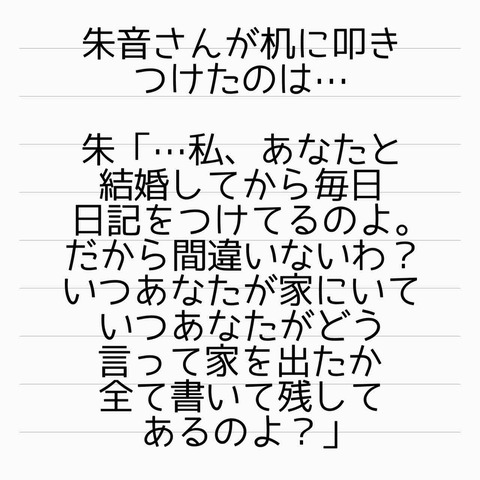 朱音さんが机に叩き
つけたのは…
朱「…私、あなたと
結婚してから毎日
日記をつけてるのよ。
だから間違いないわ？
いつあなたが家にいて
いつあなたがどう
言って家を出たか
全て書いて残して
あるのよ？」